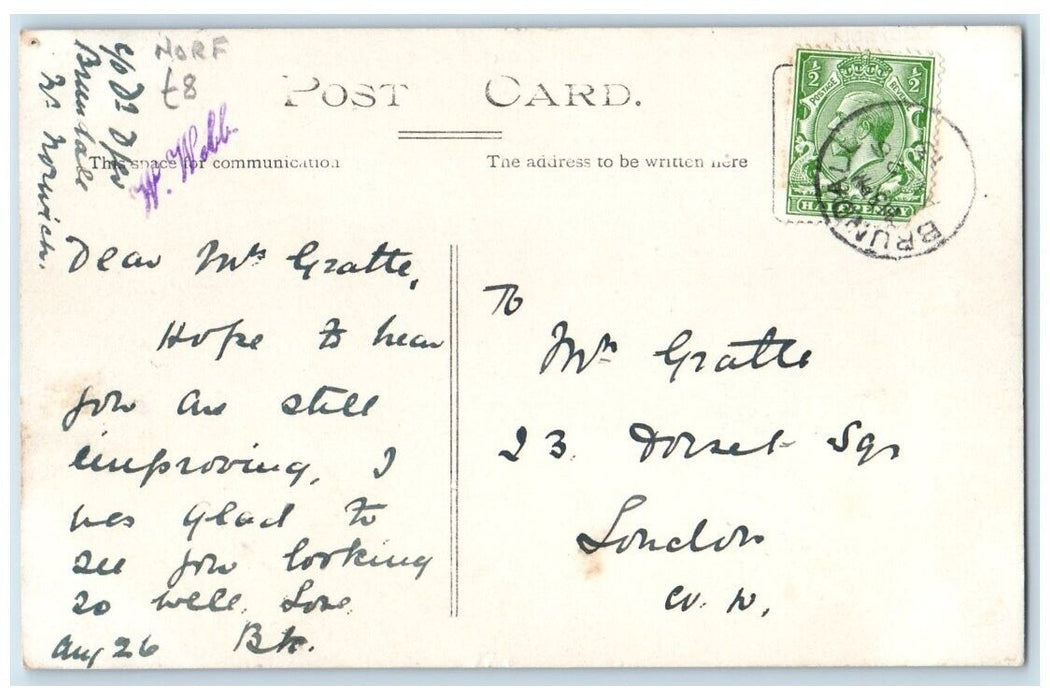 c/o Dr Dyer
Brundale
Nr Norwich.
NORF
£8
W. Webb
POST CARD.
This space for communication
The address to be written here
½ ½
POSTAGE REVENUE
HALFPENNY
BRUNDALL
Dear Mrs Gratte,
Hope to hear
you are still
improving, I
was glad to
see you looking
so well. Love
Aug 26
To
Mrs Gratte
23 Dorset Sqr
London
W. W,